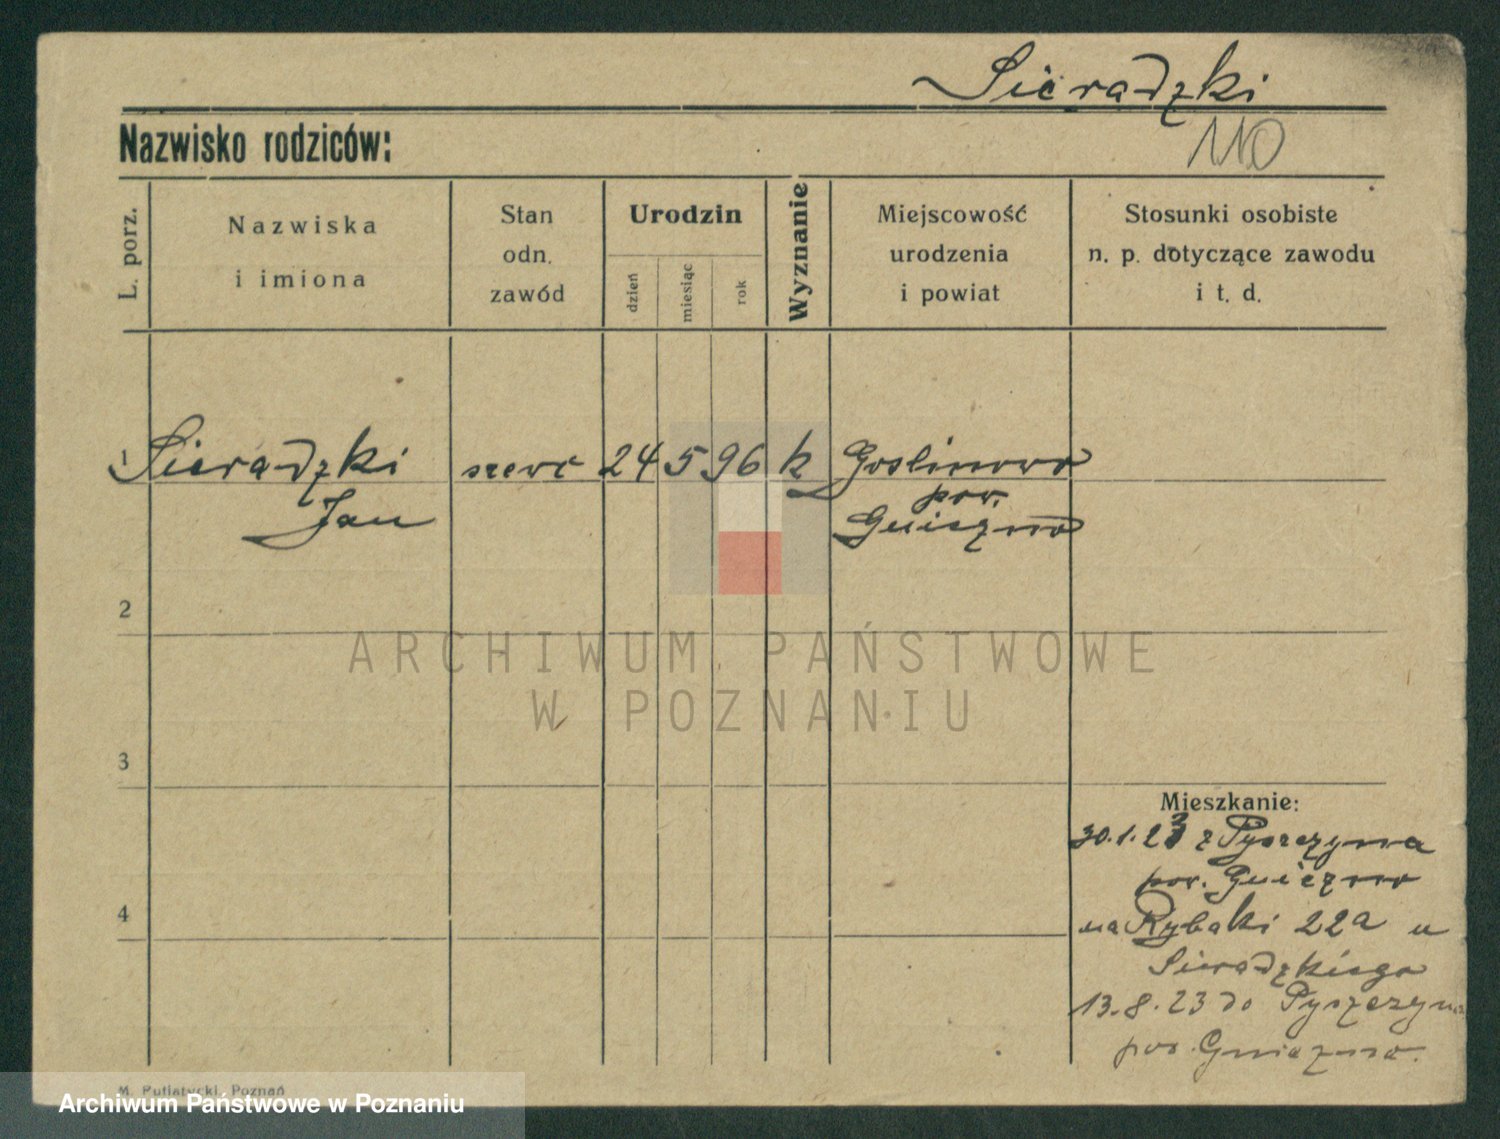 Sieradzki
Nazwisko rodziców:
L. porz.
Nazwiska
i imiona
Stan
odn.
zawód
Urodzin
dzień
miesiąc
rok
Wyznanie
Miejscowość
urodzenia
i powiat
Stosunki osobiste
n. p. dotyczące zawodu
i t. d.
1 Sieradzki szewc 24 5 96 k Goslinowo
Jan
pow.
Gniezno
2
ARCHIWUM PAŃSTWOWE
W POZNANIU
3
Mieszkanie:
30.1.23 z Pyszczyna
pow. Gniezno
4
na Rybaki 22a u
Sieradzkiego
13.8.23 do Pyszczyna
pow. Gniezno.
M. Putiatycki, Poznań
Archiwum Państwowe w Poznaniu